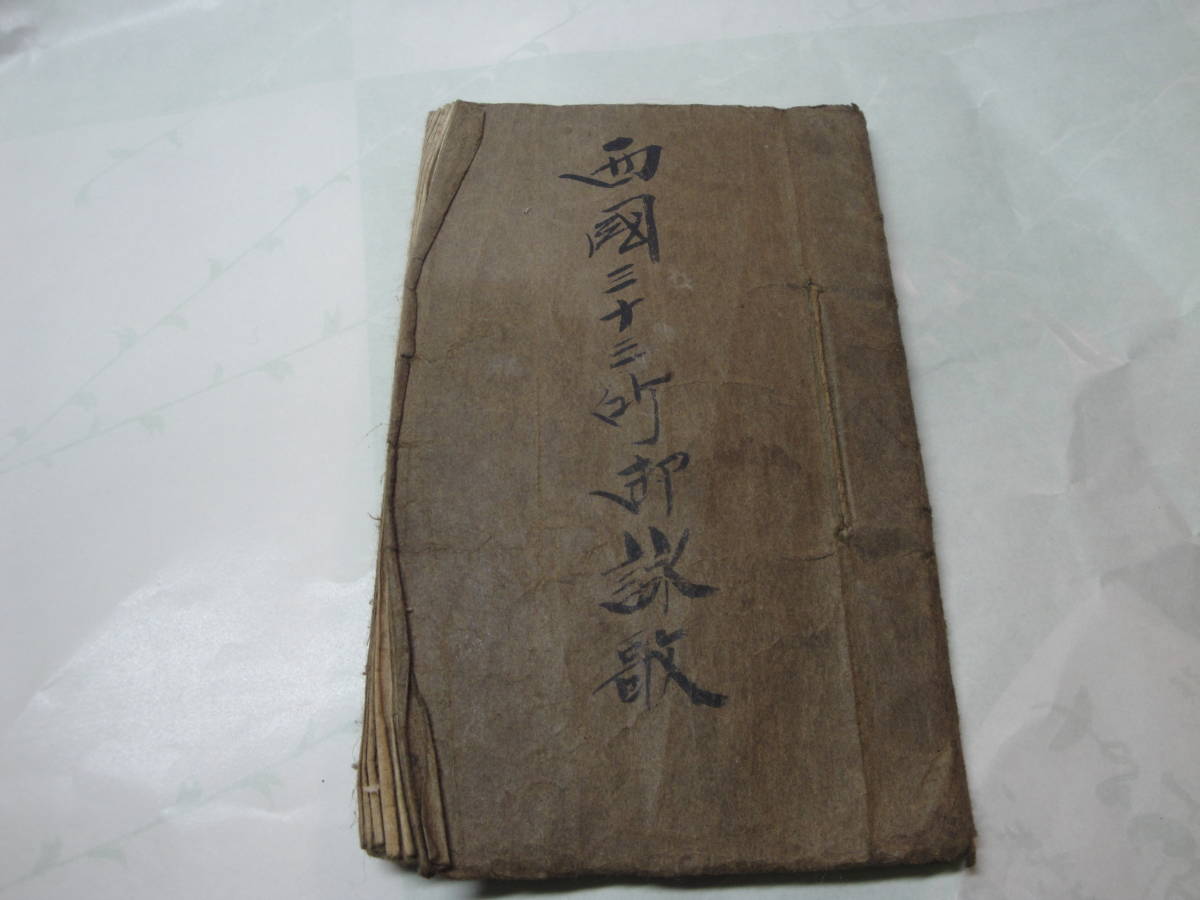 西國三十三所御詠歌